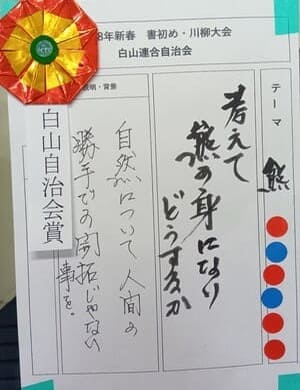 8年新春 書初め・川柳大会
白山連合自治会
テーマ
熊
考えて
熊の身になり
どうするか
説明・背景
自然について人間の
勝手での開拓じゃない
事を。
白山自治会賞